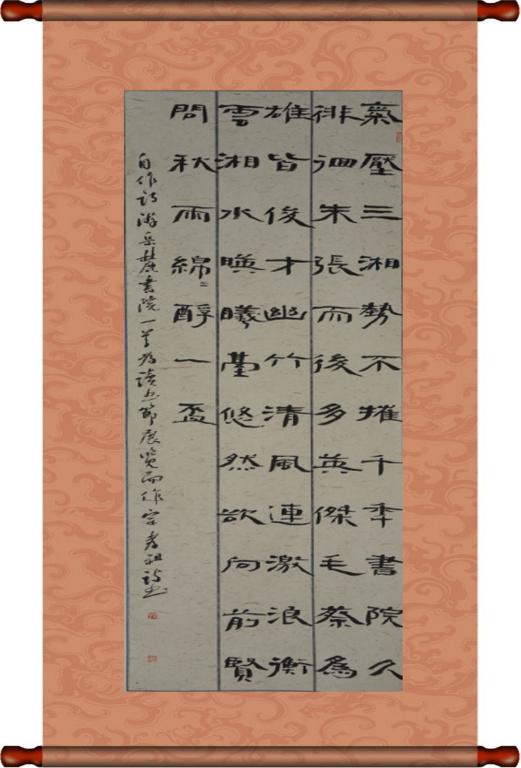 氣壓三湘勢不摧千年書院久
徘徊朱張而後多英傑毛蔡為
雄皆俊才幽竹清風連激浪衡
雲湘水暎曦臺悠然欲向前賢
問秋雨綿〻醇一盃
自作詩游岳麓書院一首為讀書節展覽而作孝祖詩書